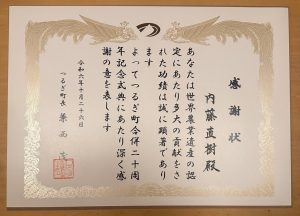 感謝状
内藤直樹殿
あなたは世界農業遺産の認
定にあたり多大の貢献をさ
れた功績は誠に顕著であり
ます
よってつるぎ町合併二十周
年記念式典にあたり深く感
謝の意を表します
令和六年十月二十六日
つるぎ町長 兼西茂